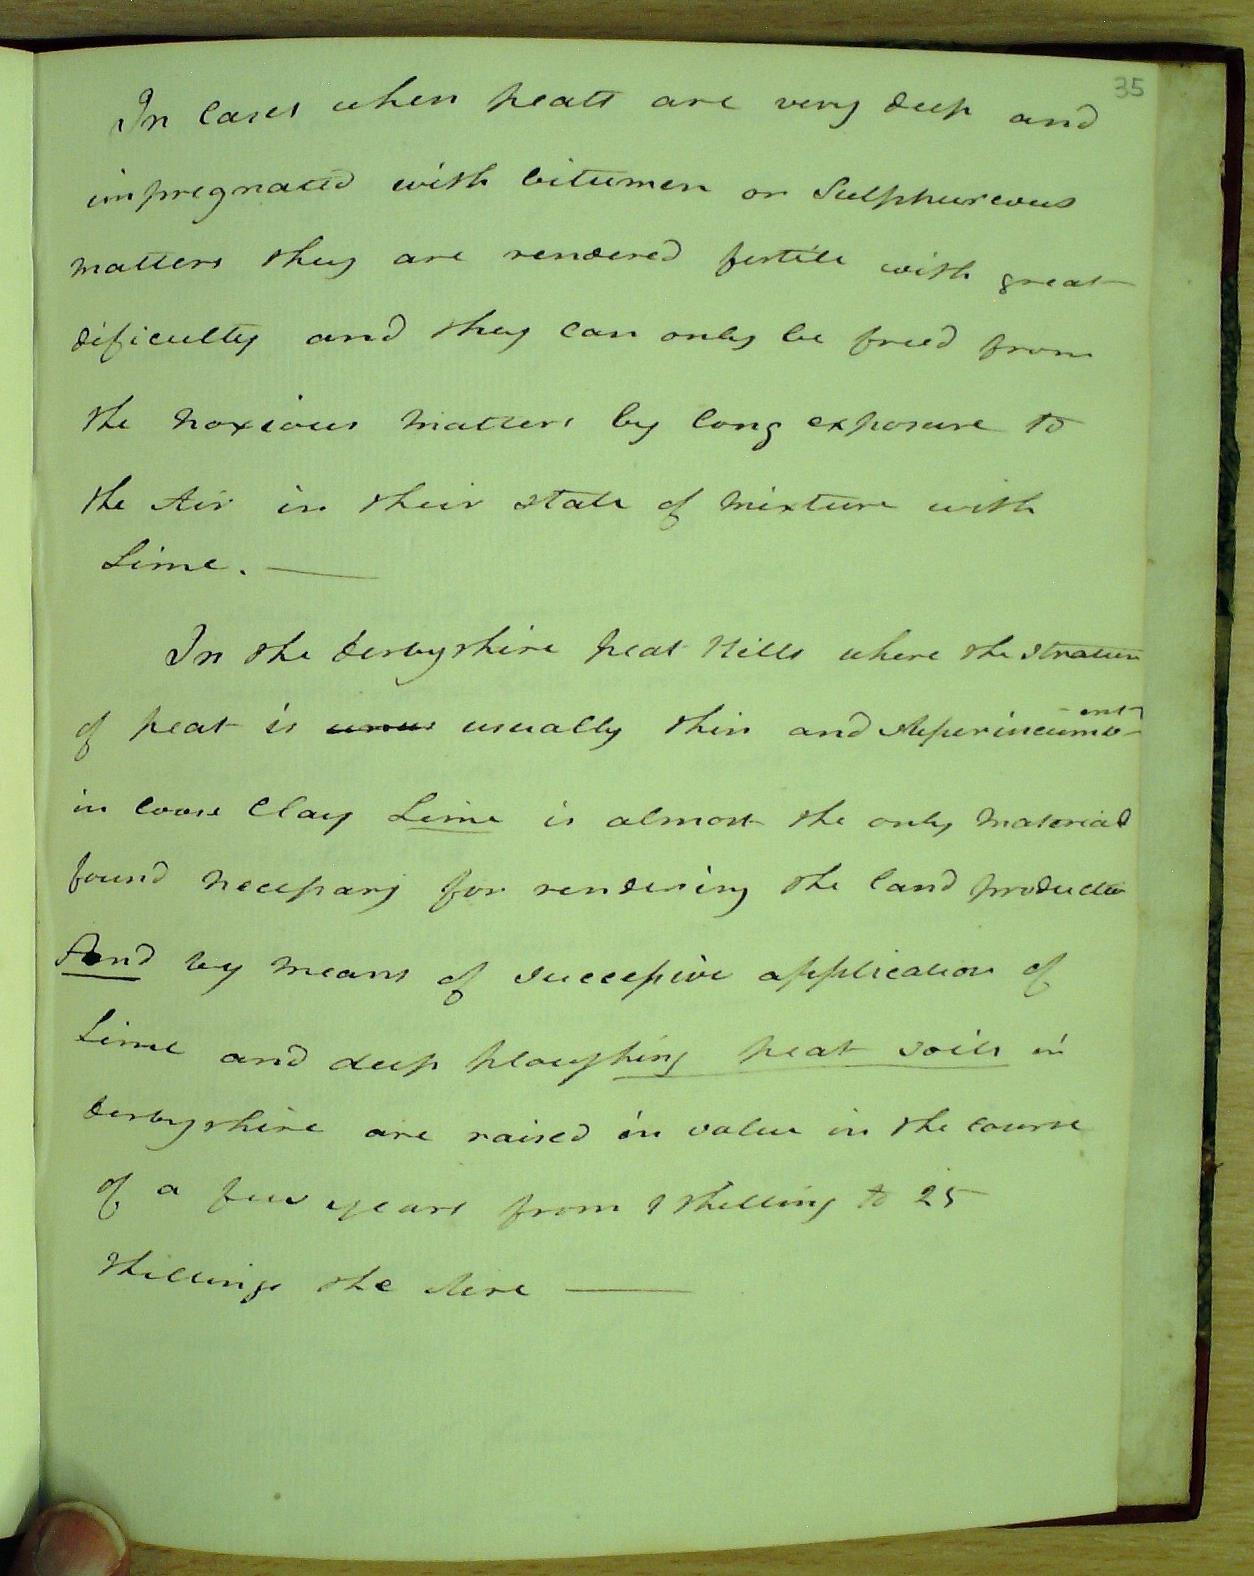 35
In Cases when peats are very deep and
impregnated with bitumen or Sulphureous
matters they are rendered fertile with great
dificulty and they can only be freed from
the noxious matters by long exposure to
the Air in their state of mixture with
Lime. —
In the Derbyshire peat Hills where the stratum
of peat is usually thin and superincumb-
-ent
in loose Clay Lime is almost the only material
found necessary for rendering the land productive
And by means of successive application of
Lime and deep ploughing peat soils in
Derbyshire are raised in value in the course
of a few years from 1 shilling to 25
shillings the Acre —